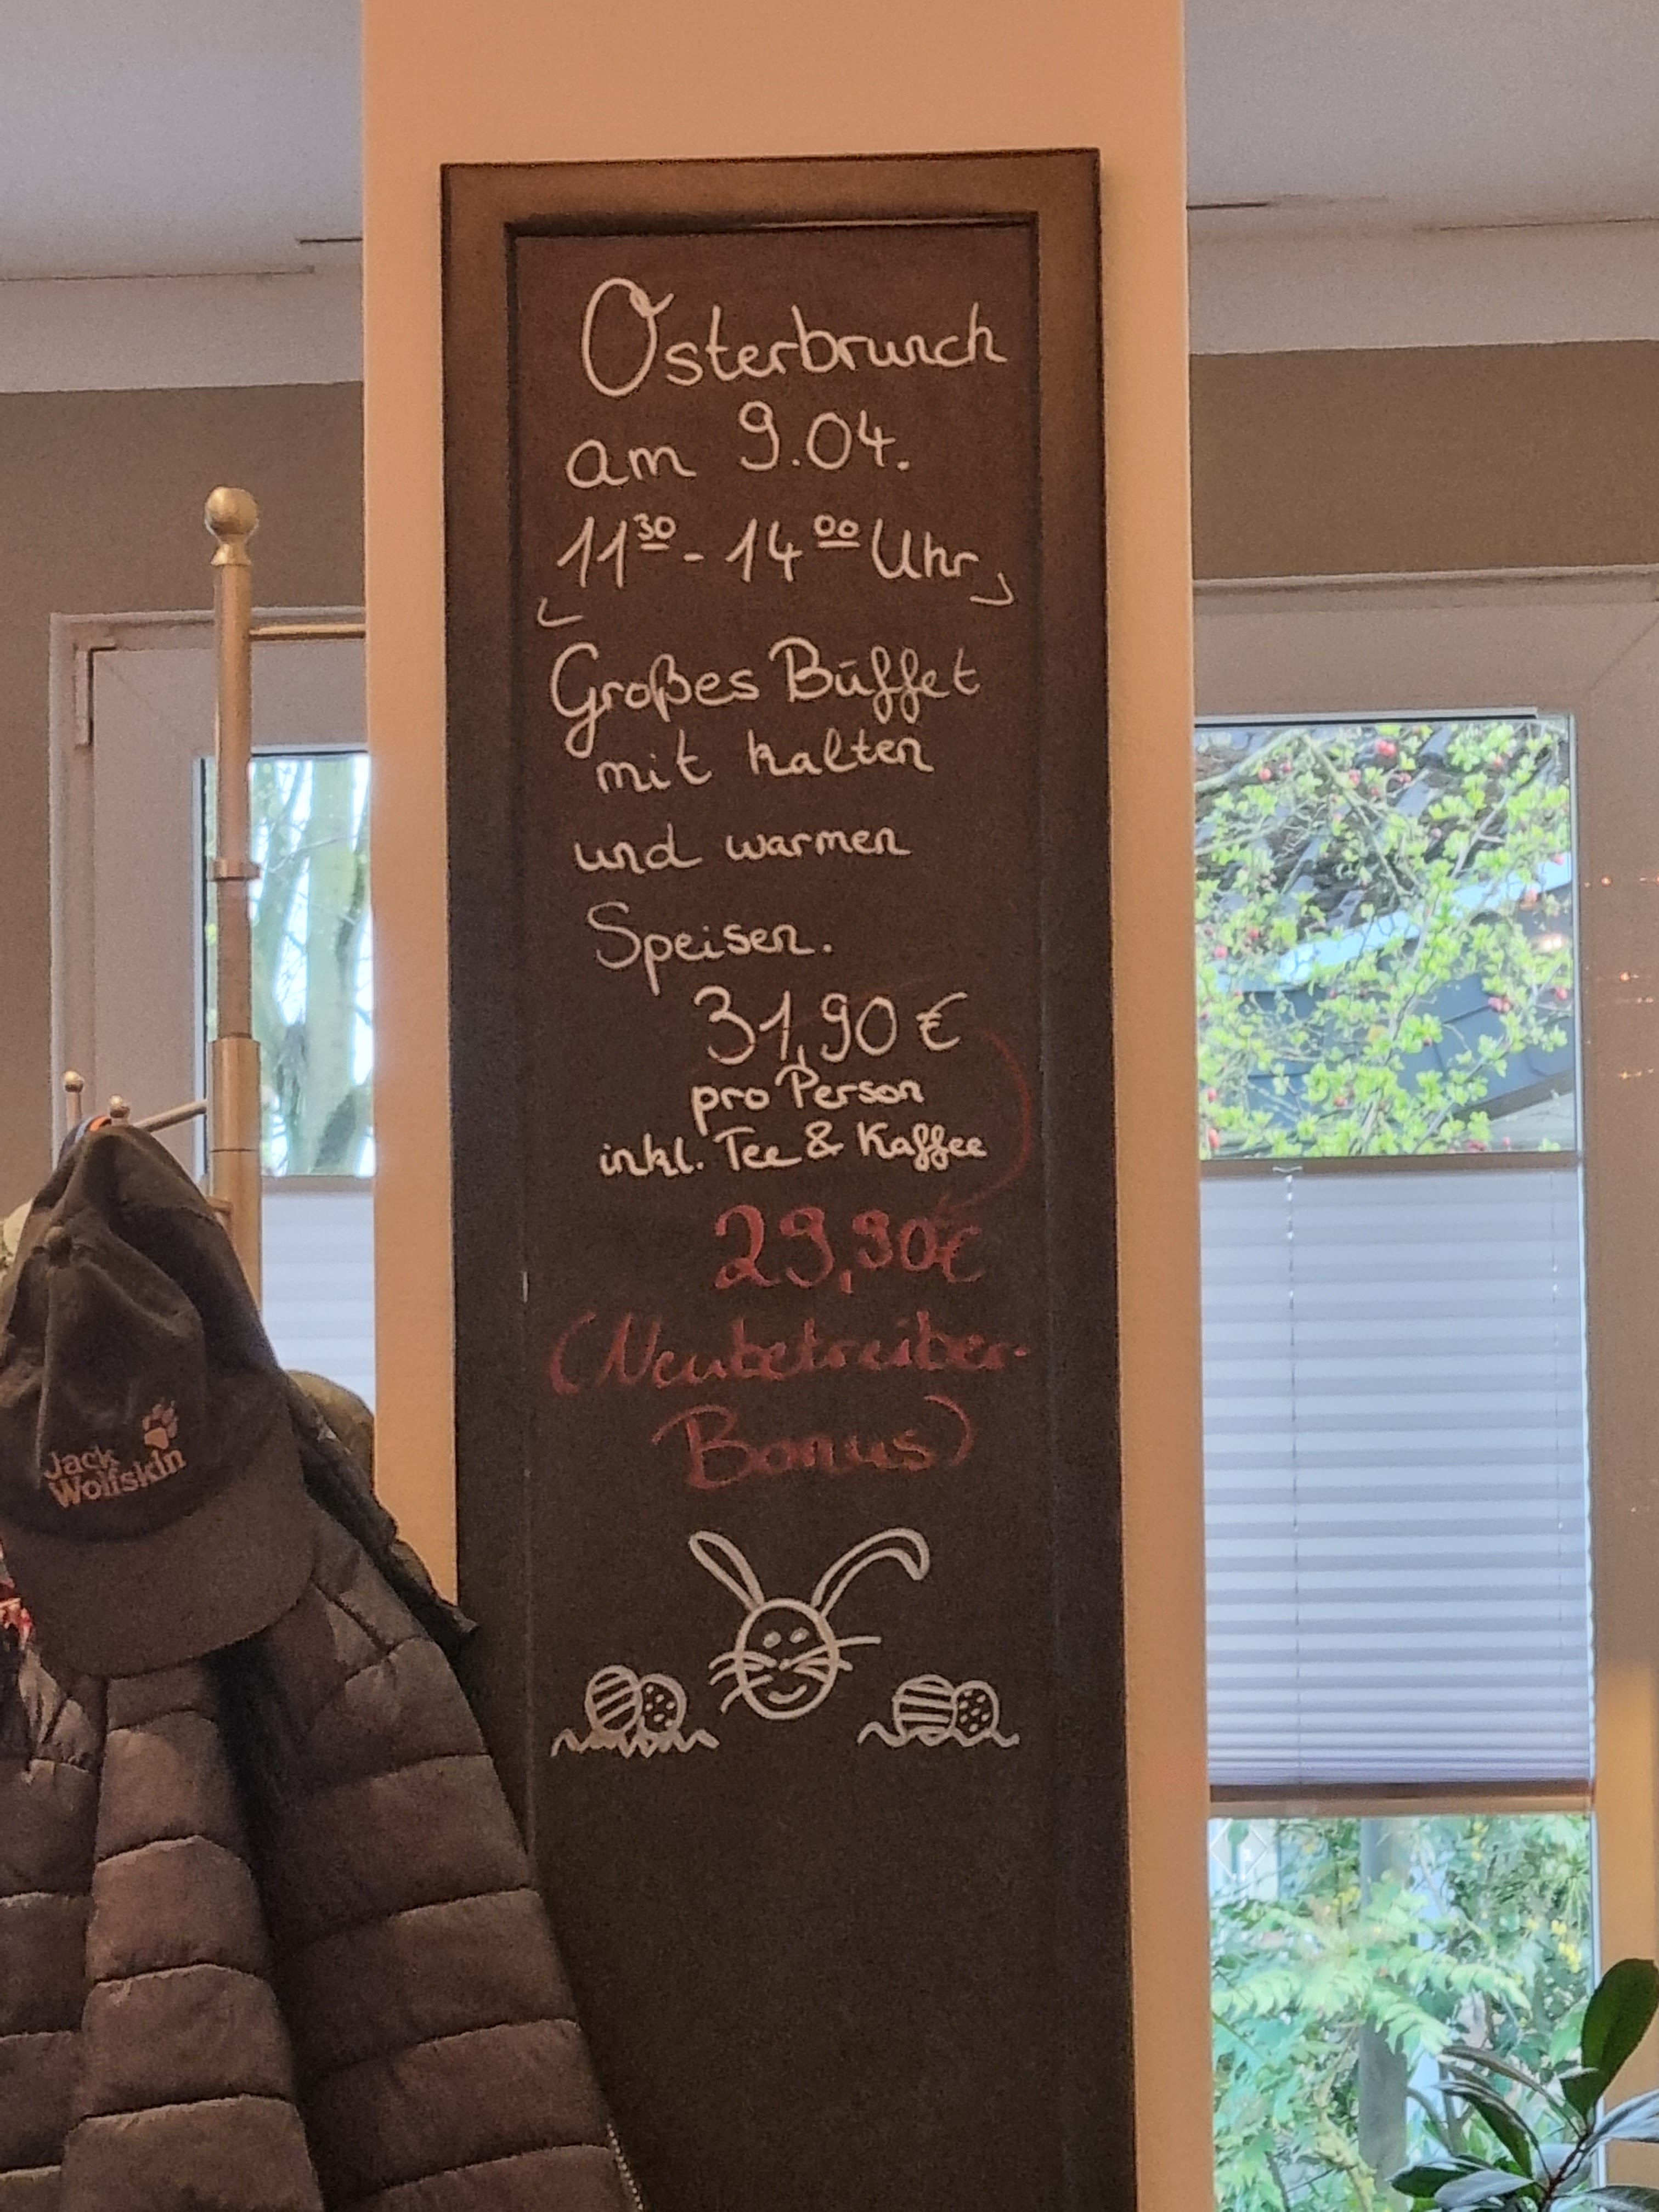 Osterbrunch
am 9.04.
11³⁰ - 14⁰⁰ Uhr
Großes Büffet
mit kalten
und warmen
Speisen.
31,90 €
pro Person
inkl. Tee & Kaffee
29,90€
(Neubetreiber-
Bonus)
Jack
Wolfskin